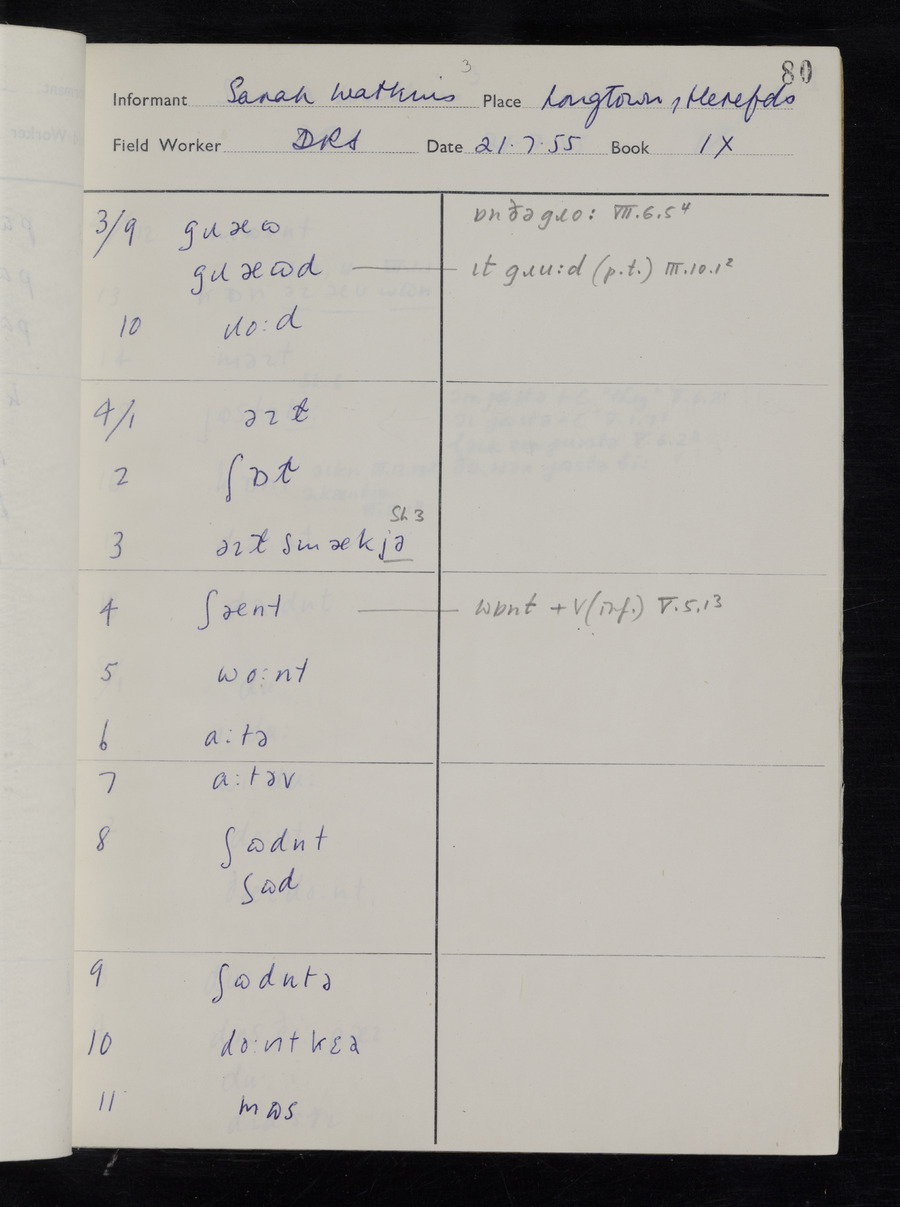 3
80
Informant Sarah Watkins Place Longtown, Herefds
Field Worker DRS Date 21.7.55 Book IX
3/9 gɹæɷ ɒn ðə gɹo: VII.6.5⁴
gɹæɷd ɪt gɹu:d (p.t.) III.10.1²
10 ɹo:d
4/1 əɪt
2 ʃɒt
Sh 3
3 əɪt smækjə
4 ʃænt wɒnt + V(inf.) V.5.13
5 wo:nt
6 a:tə
7 a:təv
8 ʃɷdnt
ʃɷd
9 ʃɷdntə
10 do:nt kɛə
11 mɷs